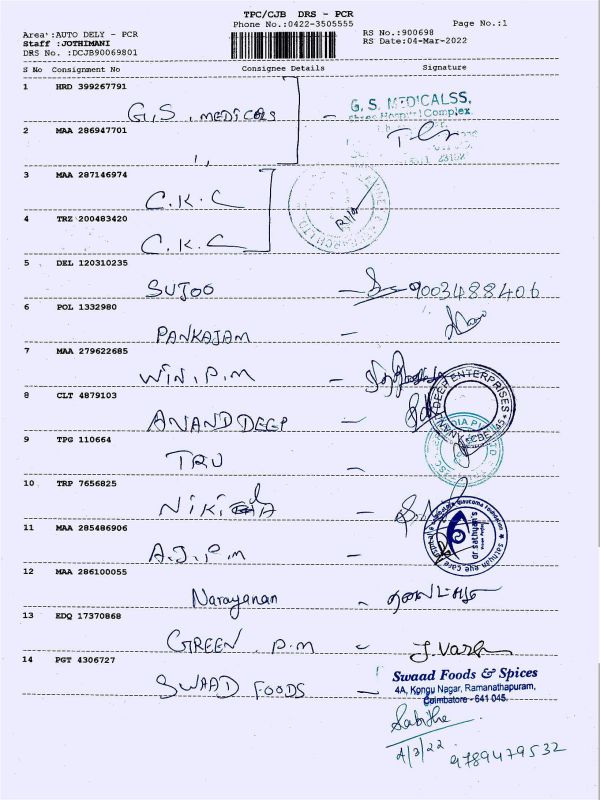 TPC/CJB DRS - PCR
Phone No.:0422-3505555
Page No.:1
Area :AUTO DELY - PCR
Staff :JOTHIMANI
DRS No. :DCJB90069801
RS No.:900698
RS Date:04-Mar-2022
S No Consignment No Consignee Details Signature
1 HRD 399267791
G.S. MEDICALS -
G. S. MEDICALSS,
Hospital Complex
2 MAA 286947701
3 MAA 287146974
C.K.C
4 TRZ 200483420
C.K.C
5 DEL 120310235
SUJOO - 9003488406
6 POL 1332980
PANKAJAM -
7 MAA 279622685
WIN.P.M -
8 CLT 4879103
ANANDDEEP
ANANDDEEP ENTERPRISES
9 TPG 110664
TRU -
10 TRP 7656825
11 MAA 285486906
A.J.P.M -
dr sathyan's
Sathyan Eye Care
12 MAA 286100055
Narayanan -
13 EDQ 17370868
GREEN P.M -
14 PGT 4306727
SWAAD FOODS -
Swaad Foods & Spices
4A, Kongu Nagar, Ramanathapuram,
Coimbatore - 641 045.
4/3/22
9789479532